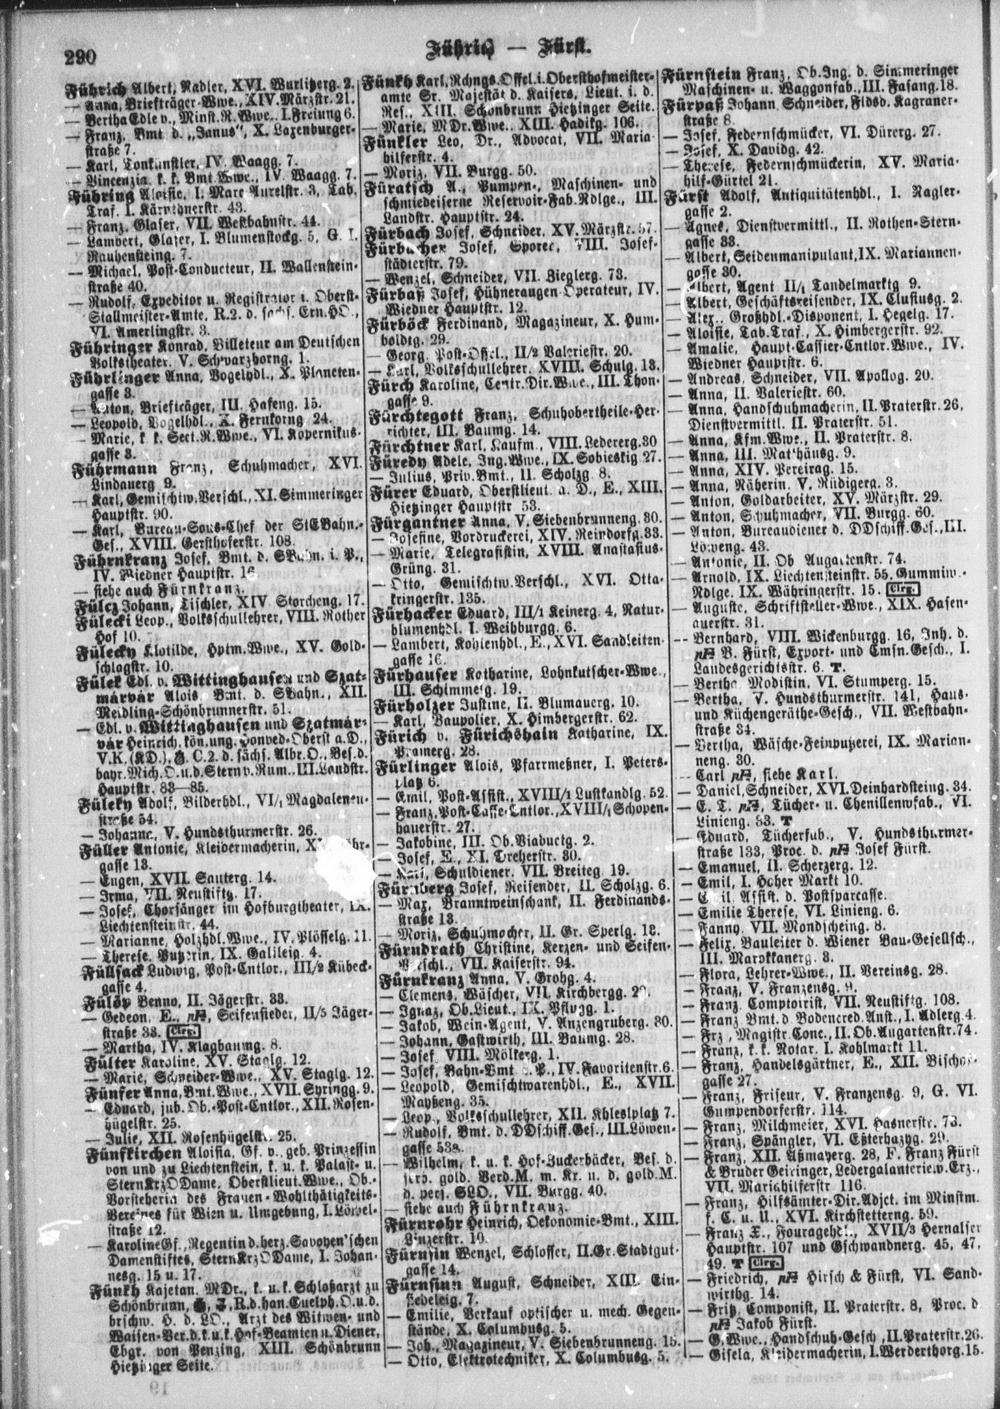 290
Führich — Fürst.
Führich Albert, Radler, XVI. Wurlitzerg. 2.
— Anna, Briefträger-Wwe., XIV. Märzstr. 21.
— Bertha Edle v., Minst.R.Wwe., I. Freiung 6.
— Franz, Bmt. d. „Janus“, X. Laxenburger-
straße 7.
— Karl, Tonkünstler, IV. Waagg. 7.
— Vincenzia, k. k. Bmt.Wwe., IV. Waagg. 7.
Führing Aloisie, I. Marc Aurelstr. 3, Tab.
Traf. I. Kärntnerstr. 43.
— Franz, Glaser, VII. Westbahnstr. 44.
— Lambert, Glaser, I. Blumenstockg. 5, G. I.
Rauhensteing. 7.
— Michael, Post-Conducteur, II. Wallenstein-
straße 40.
— Rudolf, Expeditor u. Registrator i. Oberst-
Stallmeister-Amte, R.2. d. sachs. Ern.HO.,
VI. Amerlingstr. 3.
Führinger Konrad, Billeteur am Deutschen
Volkstheater, V. Schwarzhorng. 1.
Führlinger Anna, Vogelhdl., X. Planeten-
gasse 3.
— Anton, Briefträger, III. Hafeng. 15.
— Leopold, Vogelhdl., X. Fernkorng 24.
— Marie, k. k. Sect.R.Wwe., VI. Kopernikus-
gasse 3.
Führmann Franz, Schuhmacher, XVI.
Lindauerg 9.
— Karl, Gemischtw.Verschl., XI. Simmeringer
Hauptstr. 90.
— Karl, Bureau-Sous-Chef der StEBahn.-
Ges., XVIII. Gersthoferstr. 108.
Führnkranz Josef, Bmt. d. SBahn. i. P.,
IV. Wiedner Hauptstr. 16
— siehe auch Fürnkranz.
Fülcz Johann, Tischler, XIV Storcheng. 17.
Fülecki Leop., Volksschullehrer, VIII. Rother
Hof 10.
Fülecky Klotilde, Hptm.Wwe., XV. Gold-
schlagstr. 10.
Fülek Edl. v. Wittinghausen und Szat-
márvár Alois Bmt. d. SBahn., XII.
Meidling-Schönbrunnerstr. 51.
— Edl. v. Wittinghausen und Szatmár-
vár Heinrich, kön.ung. Honved-Oberst a.D.,
V.K.(KD.), C.2. d. sächs. Albr.O., Bes.d.
bayr.Mich.O.u.d.Stern v.Rum., III. Landstr.
Hauptstr. 83—85.
Füleky Adolf, Bilderhdl., VI/1 Magdalenen-
straße 54.
— Johanna, V. Hundsthurmerstr. 26.
Füller Antonie, Kleidermacherin,
gasse 13.
— Eugen, XVII. Sauterg. 14.
— Irma, VII. Neustiftg. 17.
— Josef, Chorsänger im Hofburgtheater, IX.
Liechtensteinstr. 44.
— Marianne, Holzhdl.Wwe., IV. Plösselg. 11.
— Therese, Putzerin, IX. Galileig. 4.
Füllsack Ludwig, Post-Cntlor., III/2 Kübeck-
gasse 4.
Fülöp Benno, II. Jägerstr. 33.
— Gedeon, E., Seifensieder, II/5 Jäger-
straße 33. Clrg.
— Martha, IV. Klagbaumg. 8.
Fülter Karoline, XV. Staglg. 12.
— Marie, Schneider-Wwe., XV. Staglg. 12.
Fünfer Anna, Bmt.Wwe., XVII Syringg. 9.
— Eduard, jub. Ob.-Post-Cntlor., XII. Rosen-
hügelstr. 25.
— Julie, XII. Rosenhügelstr. 25.
Fünfkirchen Aloisia, Gf. v., geb. Prinzessin
von und zu Liechtenstein, k. u. k. Palast- u.
SternKrzODame, Oberstlieut.Wwe., Ob.-
Vorsteherin des Frauen-Wohlthätigkeits-
Vereines für Wien u. Umgebung, I. Löwel-
straße 12.
— Karoline Gf., Regentin d. herz. Savoyen'schen
Damenstiftes, SternKrzODame, I. Johan-
nesg. 15 u. 17.
Fünkh Kajetan, MDr., k. u. k. Schloßarzt zu
Schönbrunn, R.d.han.Guelph.O.u.d.
brschw. H. d. LO., Arzt des Witwen- und
Waisen-Ver.d.k.u.k.Hof-Beamten u. Diener,
Ehgr. von Penzing, XIII Schönbrunn
Hietzinger Seite.
Fünkh Karl, Rchngs.Offcl.i.Obersthofmeister-
amte Sr. Majestät d. Kaisers, Lieut. i. d.
Res., XIII. Schönbrunn Hietzinger Seite.
— Marie, MDr.Wwe., XIII. Hadikg. 106.
Fünkler Leo, Dr., Advocat, VII. Maria-
hilferstr. 4.
— Moriz, VII. Burgg. 50.
Füratsch A., Pumpen-, Maschinen- und
schmiedeiserne Reservoir-Fab.Ndlge., III.
Landstr. Hauptstr. 24.
Fürbach Josef, Schneider, XV. Märzstr. 57.
Fürbacher Josef, Sporer, VIII. Josef-
städterstr. 79.
— Wenzel, Schneider, VII. Zieglerg. 73.
Fürbaß Josef, Hühneraugen-Operateur, IV.
Wiedner Hauptstr. 12.
Fürböck Ferdinand, Magazineur, X. Hum-
boldtg. 29.
— Georg, Post-Offcl., II/2 Valeriestr. 20.
— Karl, Volksschullehrer, XVIII. Schulg. 13.
Fürch Karoline, Centr.Dir.Wwe., III. Thon-
gasse 9.
Fürchtegott Franz, Schuhobertheile-Her-
richter, III. Baumg. 14.
Fürchtner Karl, Kaufm., VIII. Ledererg. 30
Füredy Adele, Ing.Wwe., IX. Sobieskig 27.
— Julius, Priv.Bmt., II. Scholzg 8.
Fürer Eduard, Oberstlieut. a. D., E., XIII.
Hietzinger Hauptstr 53.
Fürgantner Anna, V. Siebenbrunneng. 30.
— Josefine, Vordruckerei, XIV. Reindorfg. 33.
— Marie, Telegrafistin, XVIII. Anastasius-
Grüng. 31.
— Otto, Gemischtw.Verschl., XVI. Otta-
kringerstr. 135.
Fürhacker Eduard, III/1 Keinerg. 4, Natur-
blumenhdl. I. Weihburgg. 6.
— Lambert, Kohlenhdl., E., XVI. Sandleiten-
gasse 16.
Fürhauser Katharine, Lohnkutscher-Wwe.,
III. Schimmelg. 19.
Fürholzer Justine, II. Blumauerg. 10.
— Karl, Baupolier, X. Himbergerstr. 62.
Fürich v. Fürichshain Katharine, IX.
Pramerg. 28.
Fürlinger Alois, Pfarrmeßner, I. Peters-
platz 6.
— Emil, Post-Assist., XVIII/1 Lustkandlg. 52.
— Franz, Post-Casse-Cntlor., XVIII/1 Schopen-
hauerstr. 27.
— Jakobine, III. Ob. Viaductg. 2.
— Josef, E., XI. Dreherstr. 30.
— Karl, Schuldiener, VII. Breiteg. 19.
Fürnberg Josef, Reisender, II. Scholzg. 6.
— Max, Branntweinschank, II. Ferdinands-
straße 13.
— Moriz, Schuhmacher, II. Gr. Sperlg. 18.
Fürndrath Christine, Kerzen- und Seifen-
Verschl., VII. Kaiserstr. 94.
Fürnkranz Anna, V. Grohg. 4.
— Clemens, Wäscher, VII. Kirchbergg. 2
— Ignaz, Ob.Lieut., IX. Pflugg. 1.
— Jakob, Wein-Agent, V. Anzengruberg. 30.
— Johann, Gastwirth, III. Baumg. 28.
— Josef, VIII. Mölkerg. 1.
— Josef, Bahn-Bmt. i. P., IV. Favoritenstr. 6.
— Leopold, Gemischtwarenhdl., E., XVII.
Mayßeng. 35.
— Leop., Volksschullehrer, XII. Khleslplatz 7.
— Rudolf, Bmt. d. DDschiff.Ges., III. Löwen-
gasse 53a.
— Wilhelm, k. u. k. Hof-Zuckerbäcker, Bes. d.
serb. gold. Verd.M. m. Kr. u. d. gold.M.
d. pers. SLO., VII. Burgg. 40.
— siehe auch Führnkranz.
Fürnrohr Heinrich, Oekonomie-Bmt., XIII.
Linzerstr. 10.
Fürnsin Wenzel, Schlosser, II. Gr. Stadtgut-
gasse 14.
Fürnsinn August, Schneider, XIII. Ein-
siedeleig. 7.
— Emilie, Verkauf optischer u. mech. Gegen-
stände, X. Columbusg. 5.
— Joh., Magazineur, V. Siebenbrunneng. 15.
— Otto, Elektrotechniker, X. Columbusg. 5.
Fürnstein Franz, Ob.Ing. d. Simmeringer
Maschinen- u. Waggonfab., III. Fasang. 18.
Fürpaß Johann, Schneider, Fldsd. Kagraner-
straße 8.
— Josef, Federnschmücker, VI. Dürerg. 27.
— Josef, X. Davidg. 42.
— Therese, Federnschmückerin, XV. Maria-
hilf-Gürtel 21.
Fürst Adolf, Antiquitätenhdl., I. Nagler-
gasse 2.
— Agnes, Dienstvermittl., II. Rothen-Stern-
gasse 33.
— Albert, Seidenmanipulant, IX. Mariannen-
gasse 30.
— Albert, Agent II/1 Tandelmarktg 9.
— Albert, Geschäftsreisender, IX. Clusiusg. 2.
— Alex., Großhdl.-Disponent, I. Hegelg. 17.
— Aloisie, Tab.Traf., X. Himbergerstr. 92.
— Amalie, Haupt-Cassier-Cntlor.Wwe., IV.
Wiedner Hauptstr. 6.
— Andreas, Schneider, VII. Apollog. 20.
— Anna, II. Valeriestr. 60.
— Anna, Handschuhmacherin, II. Praterstr. 26,
Dienstvermittl. II. Praterstr. 51.
— Anna, Kfm.Wwe., II. Praterstr. 8.
— Anna, III. Mathäusg. 9.
— Anna, XIV. Pereirag. 15.
— Anna, Näherin, V. Rüdigerg. 3.
— Anton, Goldarbeiter, XV. Märzstr. 29.
— Anton, Schuhmacher, VII. Burgg. 60.
— Anton, Bureaudiener d. DDschiff.Ges., III.
Löweng. 43.
— Antonie, II. Ob Augartenstr. 74.
— Arnold, IX. Liechtensteinstr. 55, Gummiw.-
Ndlge. IX. Währingerstr. 15. Clrg.
— Auguste, Schriftsteller-Wwe., XIX. Hasen-
auerstr. 31.
— Bernhard, VIII. Wickenburgg. 16, Inh. d.
B. Fürst, Export- und Cmsn.Gesch., I.
Landesgerichtsstr. 6. T.
— Bertha, Modistin, VI. Stumperg. 15.
— Bertha, V. Hundsthurmerstr. 141, Haus-
und Küchengeräthe-Gesch., VII. Westbahn-
straße 34.
— Bertha, Wäsche-Feinputzerei, IX. Marian-
neng. 30.
— Carl, siehe Karl.
— Daniel, Schneider, XVI. Deinhardsteing. 34.
— E. T., Tücher- u. Chenillenwfab., VI.
Linieng. 53. T
— Eduard, Tücherfab., V. Hundsthurmer-
straße 133, Proc. d. Josef Fürst.
— Emanuel, II. Scherzerg. 12.
— Emil, I. Hoher Markt 10.
— Emil, Assist. d. Postsparcasse.
— Emilie Therese, VI. Linieng. 6.
— Fanny, VII. Mondscheing. 8.
— Felix, Bauleiter d. Wiener Bau-Gesellsch.,
III. Marokkanerg. 3.
— Flora, Lehrer-Wwe., II. Vereinsg. 28.
— Franz, V. Franzensg. 9.
— Franz Comptoirist, VII. Neustiftg. 108.
— Franz Bmt.d. Bodencred.Anst., I. Adlerg. 4.
— Frz., Magistr.Conc., II. Ob. Augartenstr. 74.
— Franz, k. k. Notar, I. Kohlmarkt 11.
— Franz, Handelsgärtner, E., XII. Bischof-
gasse 27.
— Franz, Friseur, V. Franzensg. 9, G. VI.
Gumpendorferstr. 114.
— Franz, Milchmeier, XVI. Hasnerstr. 73.
— Franz, Spängler, VI. Eßterhazyg. 29.
— Franz, XII. Aßmayerg. 28, F. Franz Fürst
& Bruder Geiringer, Ledergalanteriew.Erz.,
VII. Mariahilferstr 116.
— Franz, Hilfsämter-Dir.Adjct. im Minstm.
f. C. u. U., XVI. Kirchstetterng. 59.
— Franz X., Fouragehdl., XVII/3 Hernalser
Hauptstr. 107 und Gschwandnerg. 45, 47,
49. T Clrg.
— Friedrich, Hirsch & Fürst, VI. Sand-
wirthg. 14.
— Fritz, Componist, II. Praterstr. 8, Proc. d
Jakob Fürst.
— G.Wwe., Handschuh-Gesch., II. Praterstr. 26.
— Gisela, Kleidermacherin, I. Werderthorg. 15.
19